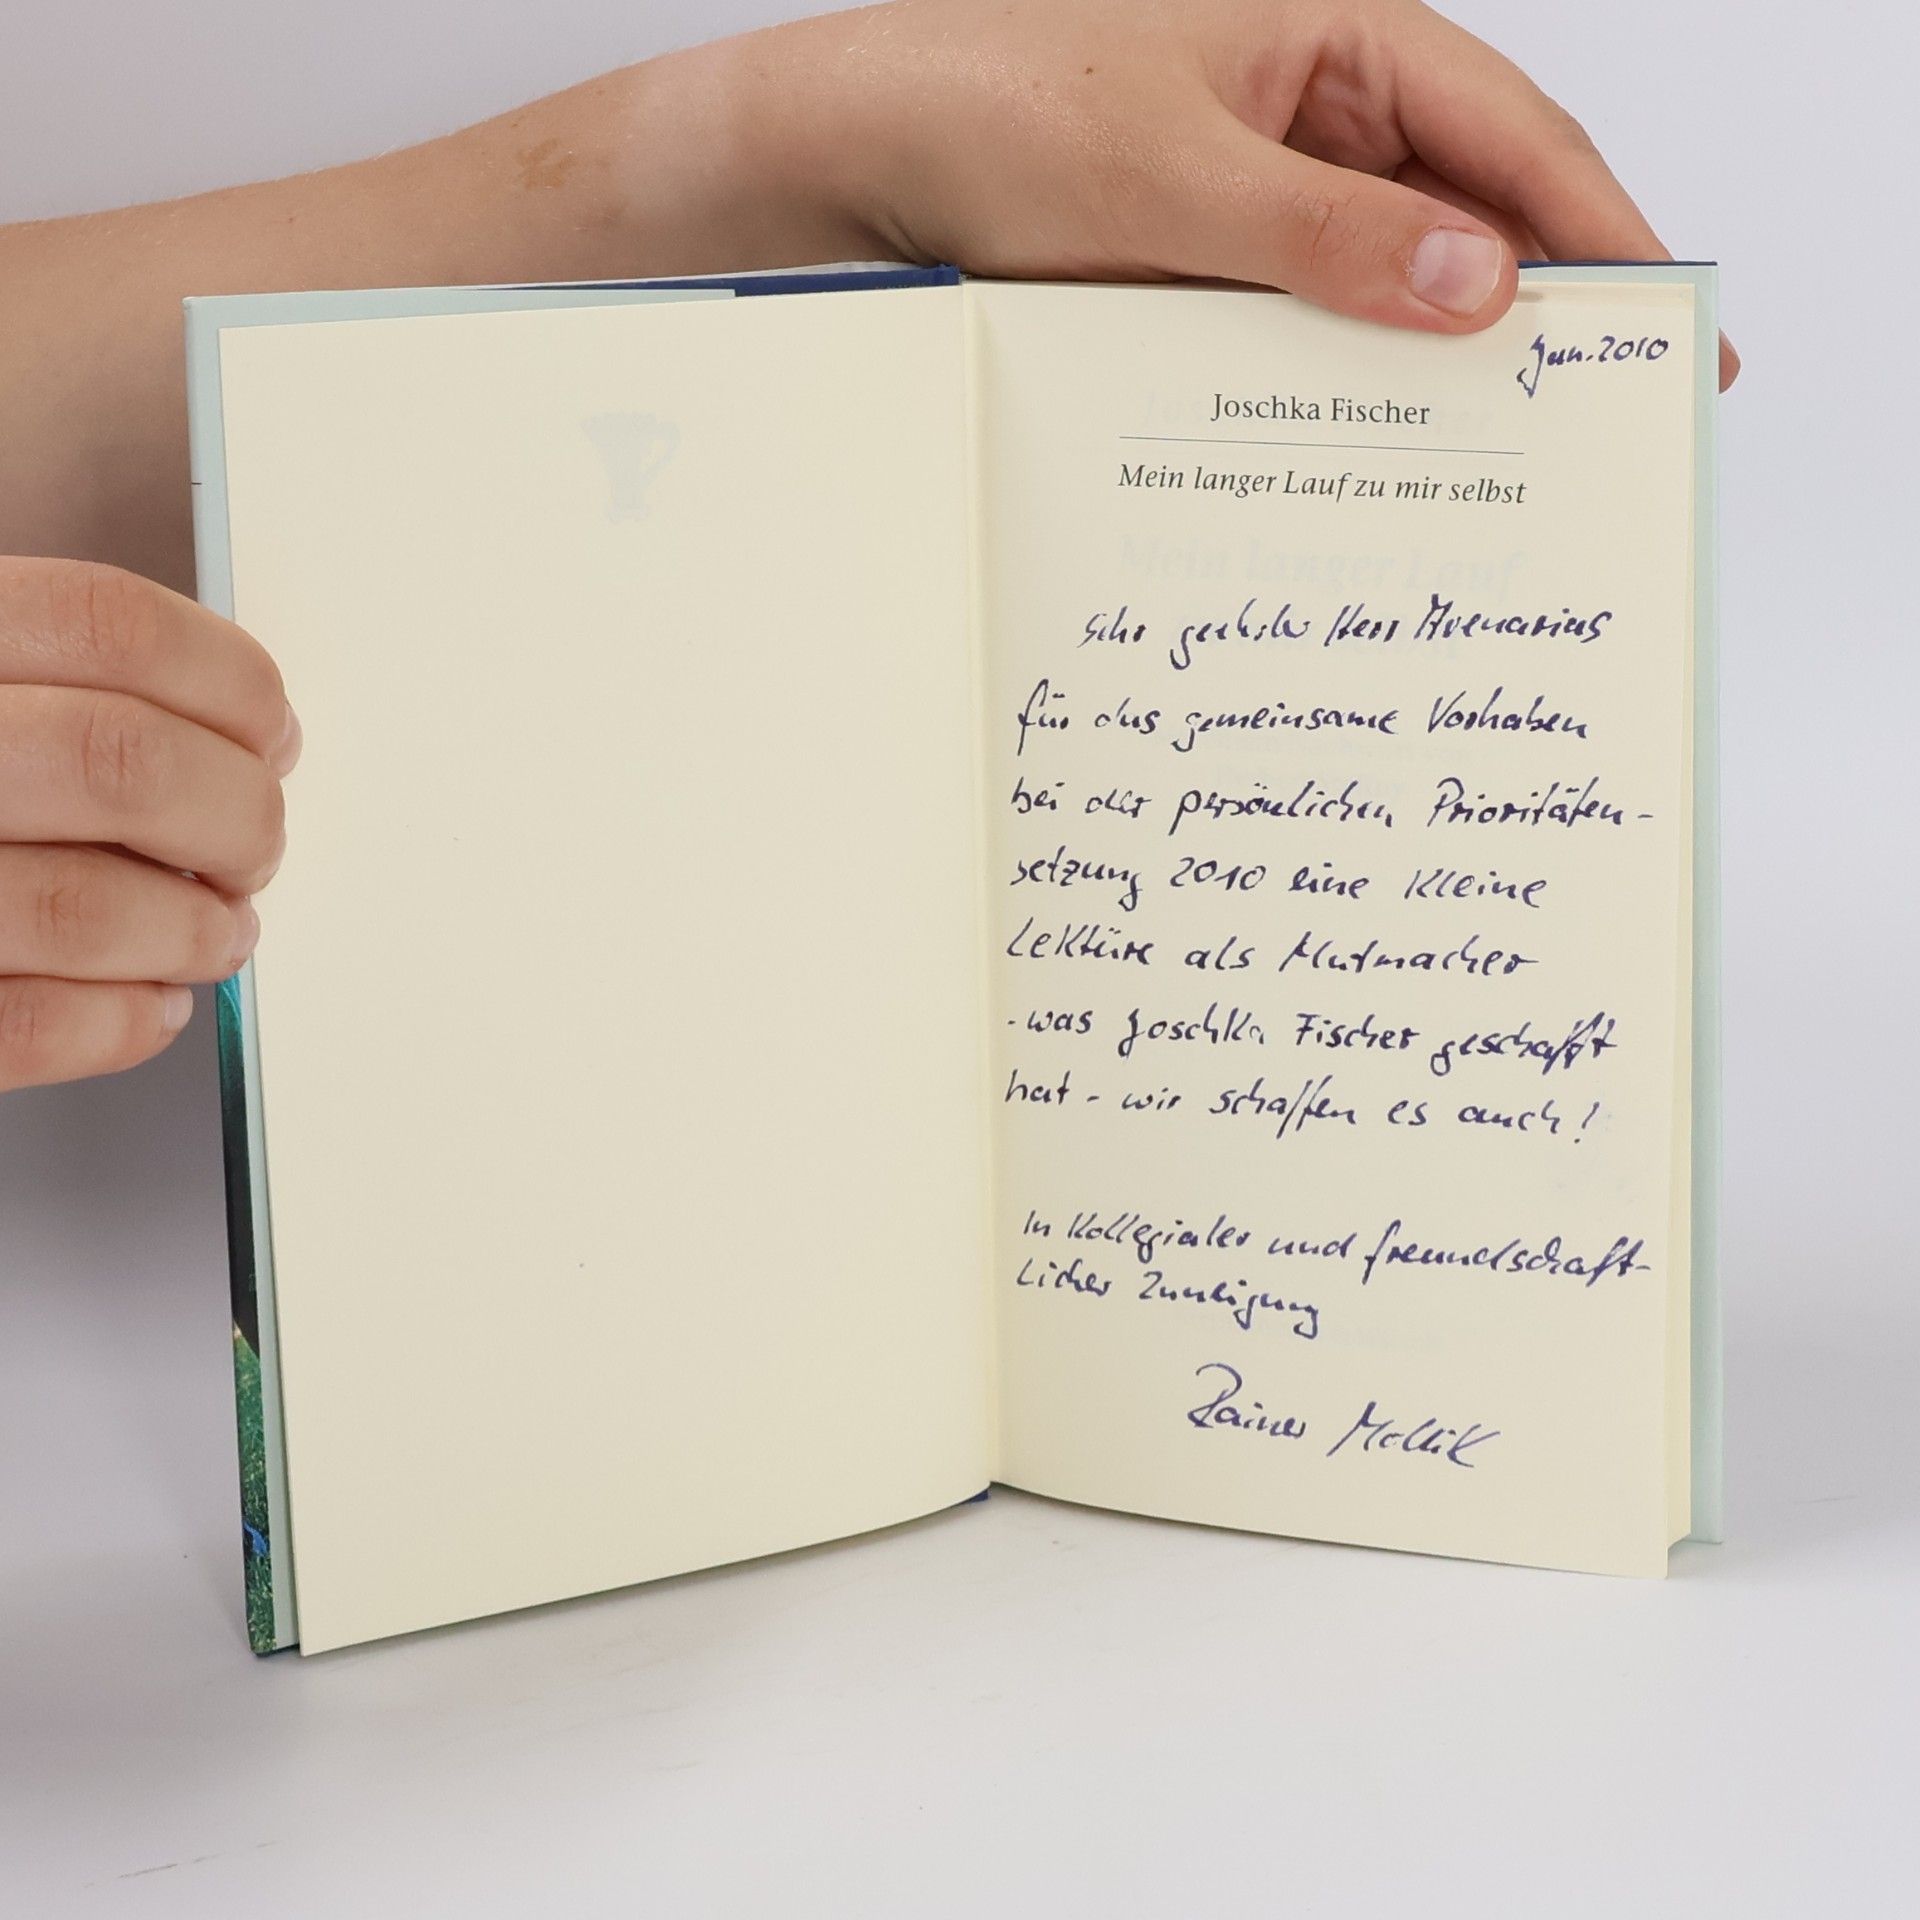 Jan. 2010
Joschka Fischer
Mein langer Lauf zu mir selbst
Sehr geehrter Herr Avenarius
für das gemeinsame Vorhaben
bei der persönlichen Prioritäten-
setzung 2010 eine kleine
Lektüre als Mutmacher
- was Joschka Fischer geschafft
hat - wir schaffen es auch!
In kollegialer und freundschaft-
licher Zuneigung
Rainer